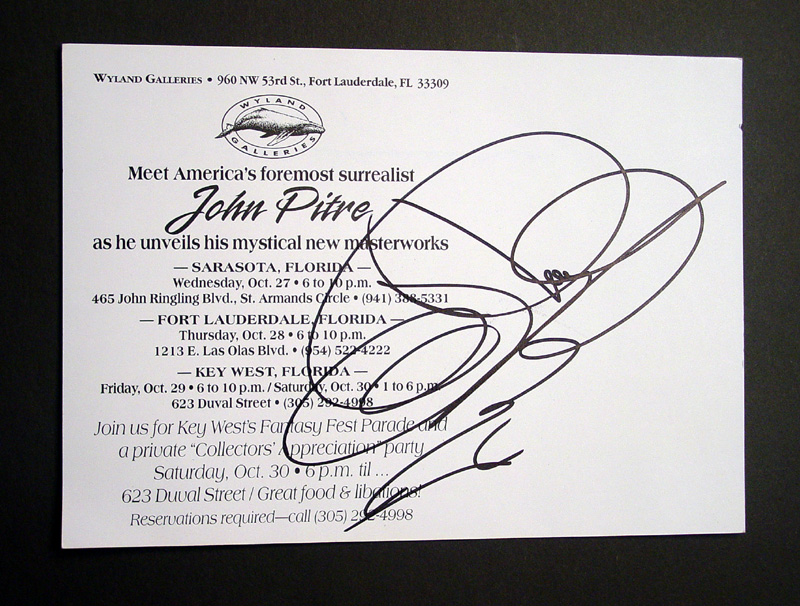 WYLAND GALLERIES • 960 NW 53rd St., Fort Lauderdale, FL 33309
WYLAND
GALLERIES
Meet America's foremost surrealist
John Pitre
as he unveils his mystical new masterworks
— SARASOTA, FLORIDA —
Wednesday, Oct. 27 • 6 to 10 p.m.
465 John Ringling Blvd., St. Armands Circle • (941) 388-5331
— FORT LAUDERDALE, FLORIDA —
Thursday, Oct. 28 • 6 to 10 p.m.
1213 E. Las Olas Blvd. • (954) 522-4222
— KEY WEST, FLORIDA —
Friday, Oct. 29 • 6 to 10 p.m. / Saturday, Oct. 30 • 1 to 6 p.m.
623 Duval Street • (305) 292-4998
Join us for Key West's Fantasy Fest Parade and
a private "Collectors' Appreciation" party
Saturday, Oct. 30 • 6 p.m. til ...
623 Duval Street / Great food & libations!
Reservations required—call (305) 292-4998